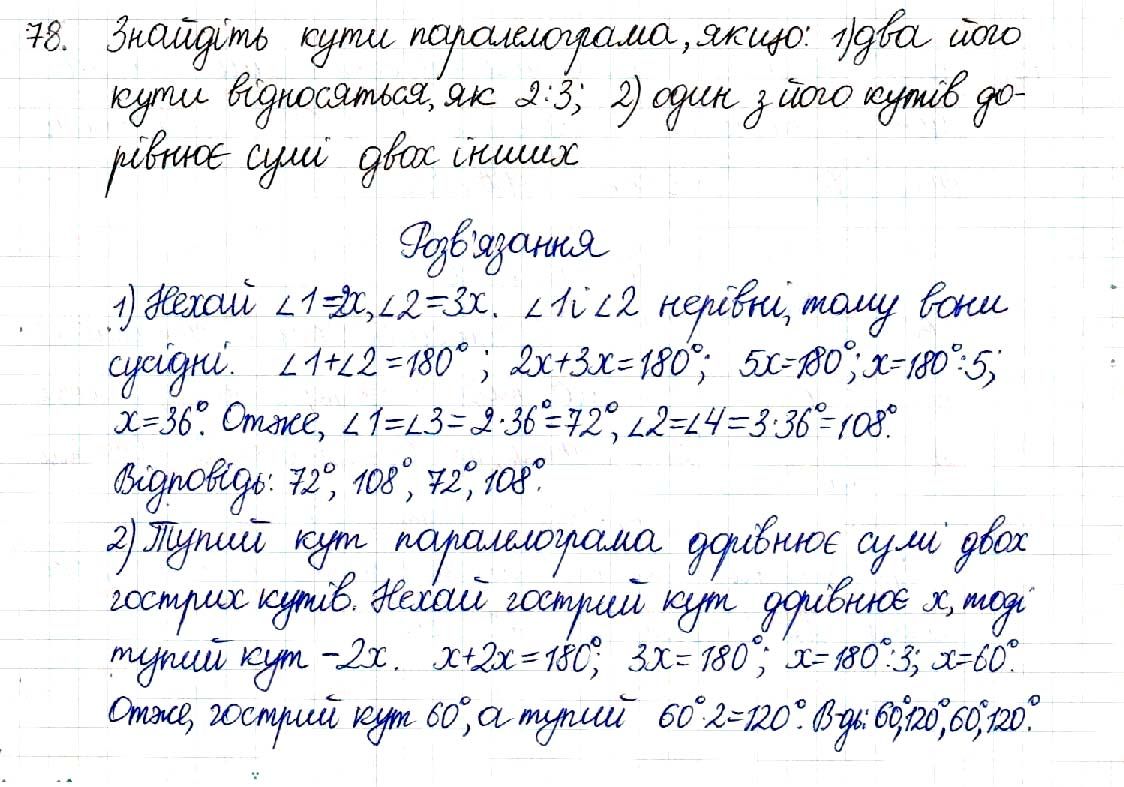 78. Знайдіть кути паралелограма, якщо: 1) два його
кути відносяться, як 2:3; 2) один з його кутів до-
рівнює сумі двох інших
Розв'язання
1) Нехай ∠1=2x, ∠2=3x. ∠1 і ∠2 нерівні, тому вони
сусідні. ∠1+∠2=180°; 2x+3x=180°; 5x=180°; x=180°:5;
x=36°. Отже, ∠1=∠3=2·36°=72°, ∠2=∠4=3·36°=108°.
Відповідь: 72°, 108°, 72°, 108°.
2) Тупий кут паралелограма дорівнює сумі двох
гострих кутів. Нехай гострий кут дорівнює x, тоді
тупий кут – 2x. x+2x=180°; 3x=180°; x=180°:3; x=60°.
Отже, гострий кут 60°, а тупий 60°·2=120°. В-дь: 60°, 120°, 60°, 120°.